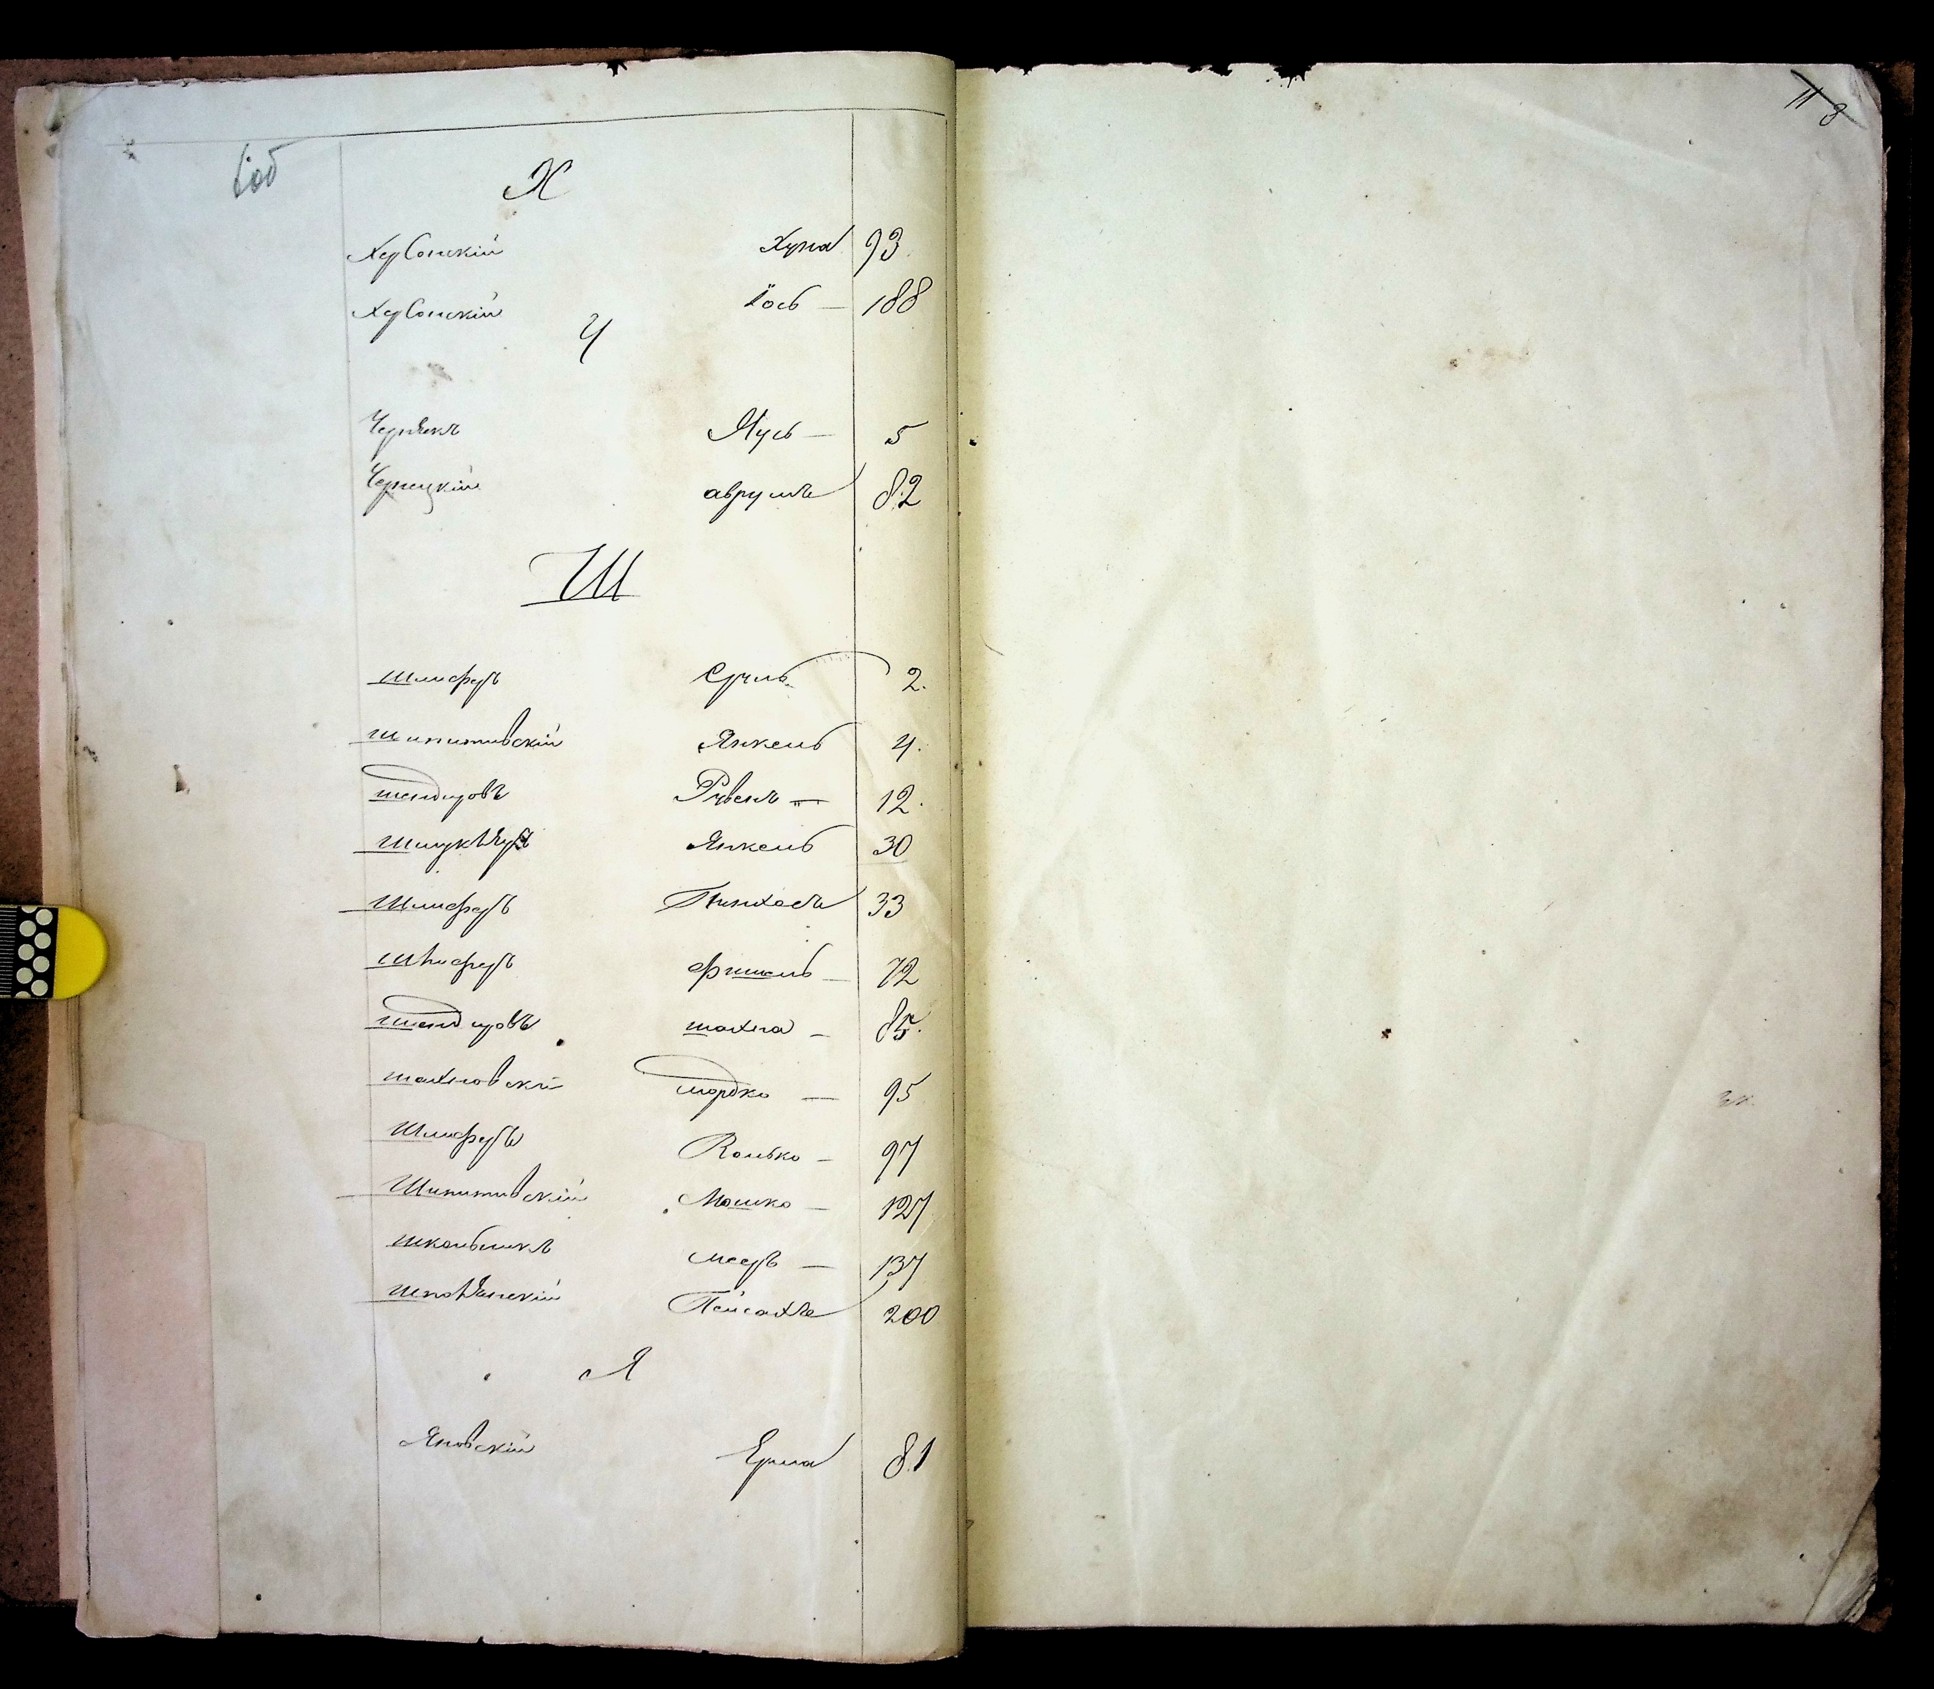 Х
Херсонскій Хуна 93
Херсонскій Іось — 188
Ч
Чернякъ Мусь — 5
Чернецкій аврумъ 82
Ш
Шлиферъ Сруль 2.
Шипитивскій Янкель 4.
шендеровъ Рувенъ — 12.
Янкель 30
Шлиферъ Пинхасъ 33
Шлиферъ фишель — 72
шендеровъ шахна — 85.
шахновскій мордко — 95
Шлиферъ Волько — 97
Шипитивскій Мошко — 127
школьникъ мееръ — 137
шполянскій Пейсахъ 200
Я
Яновскій Ерма 81
11 8